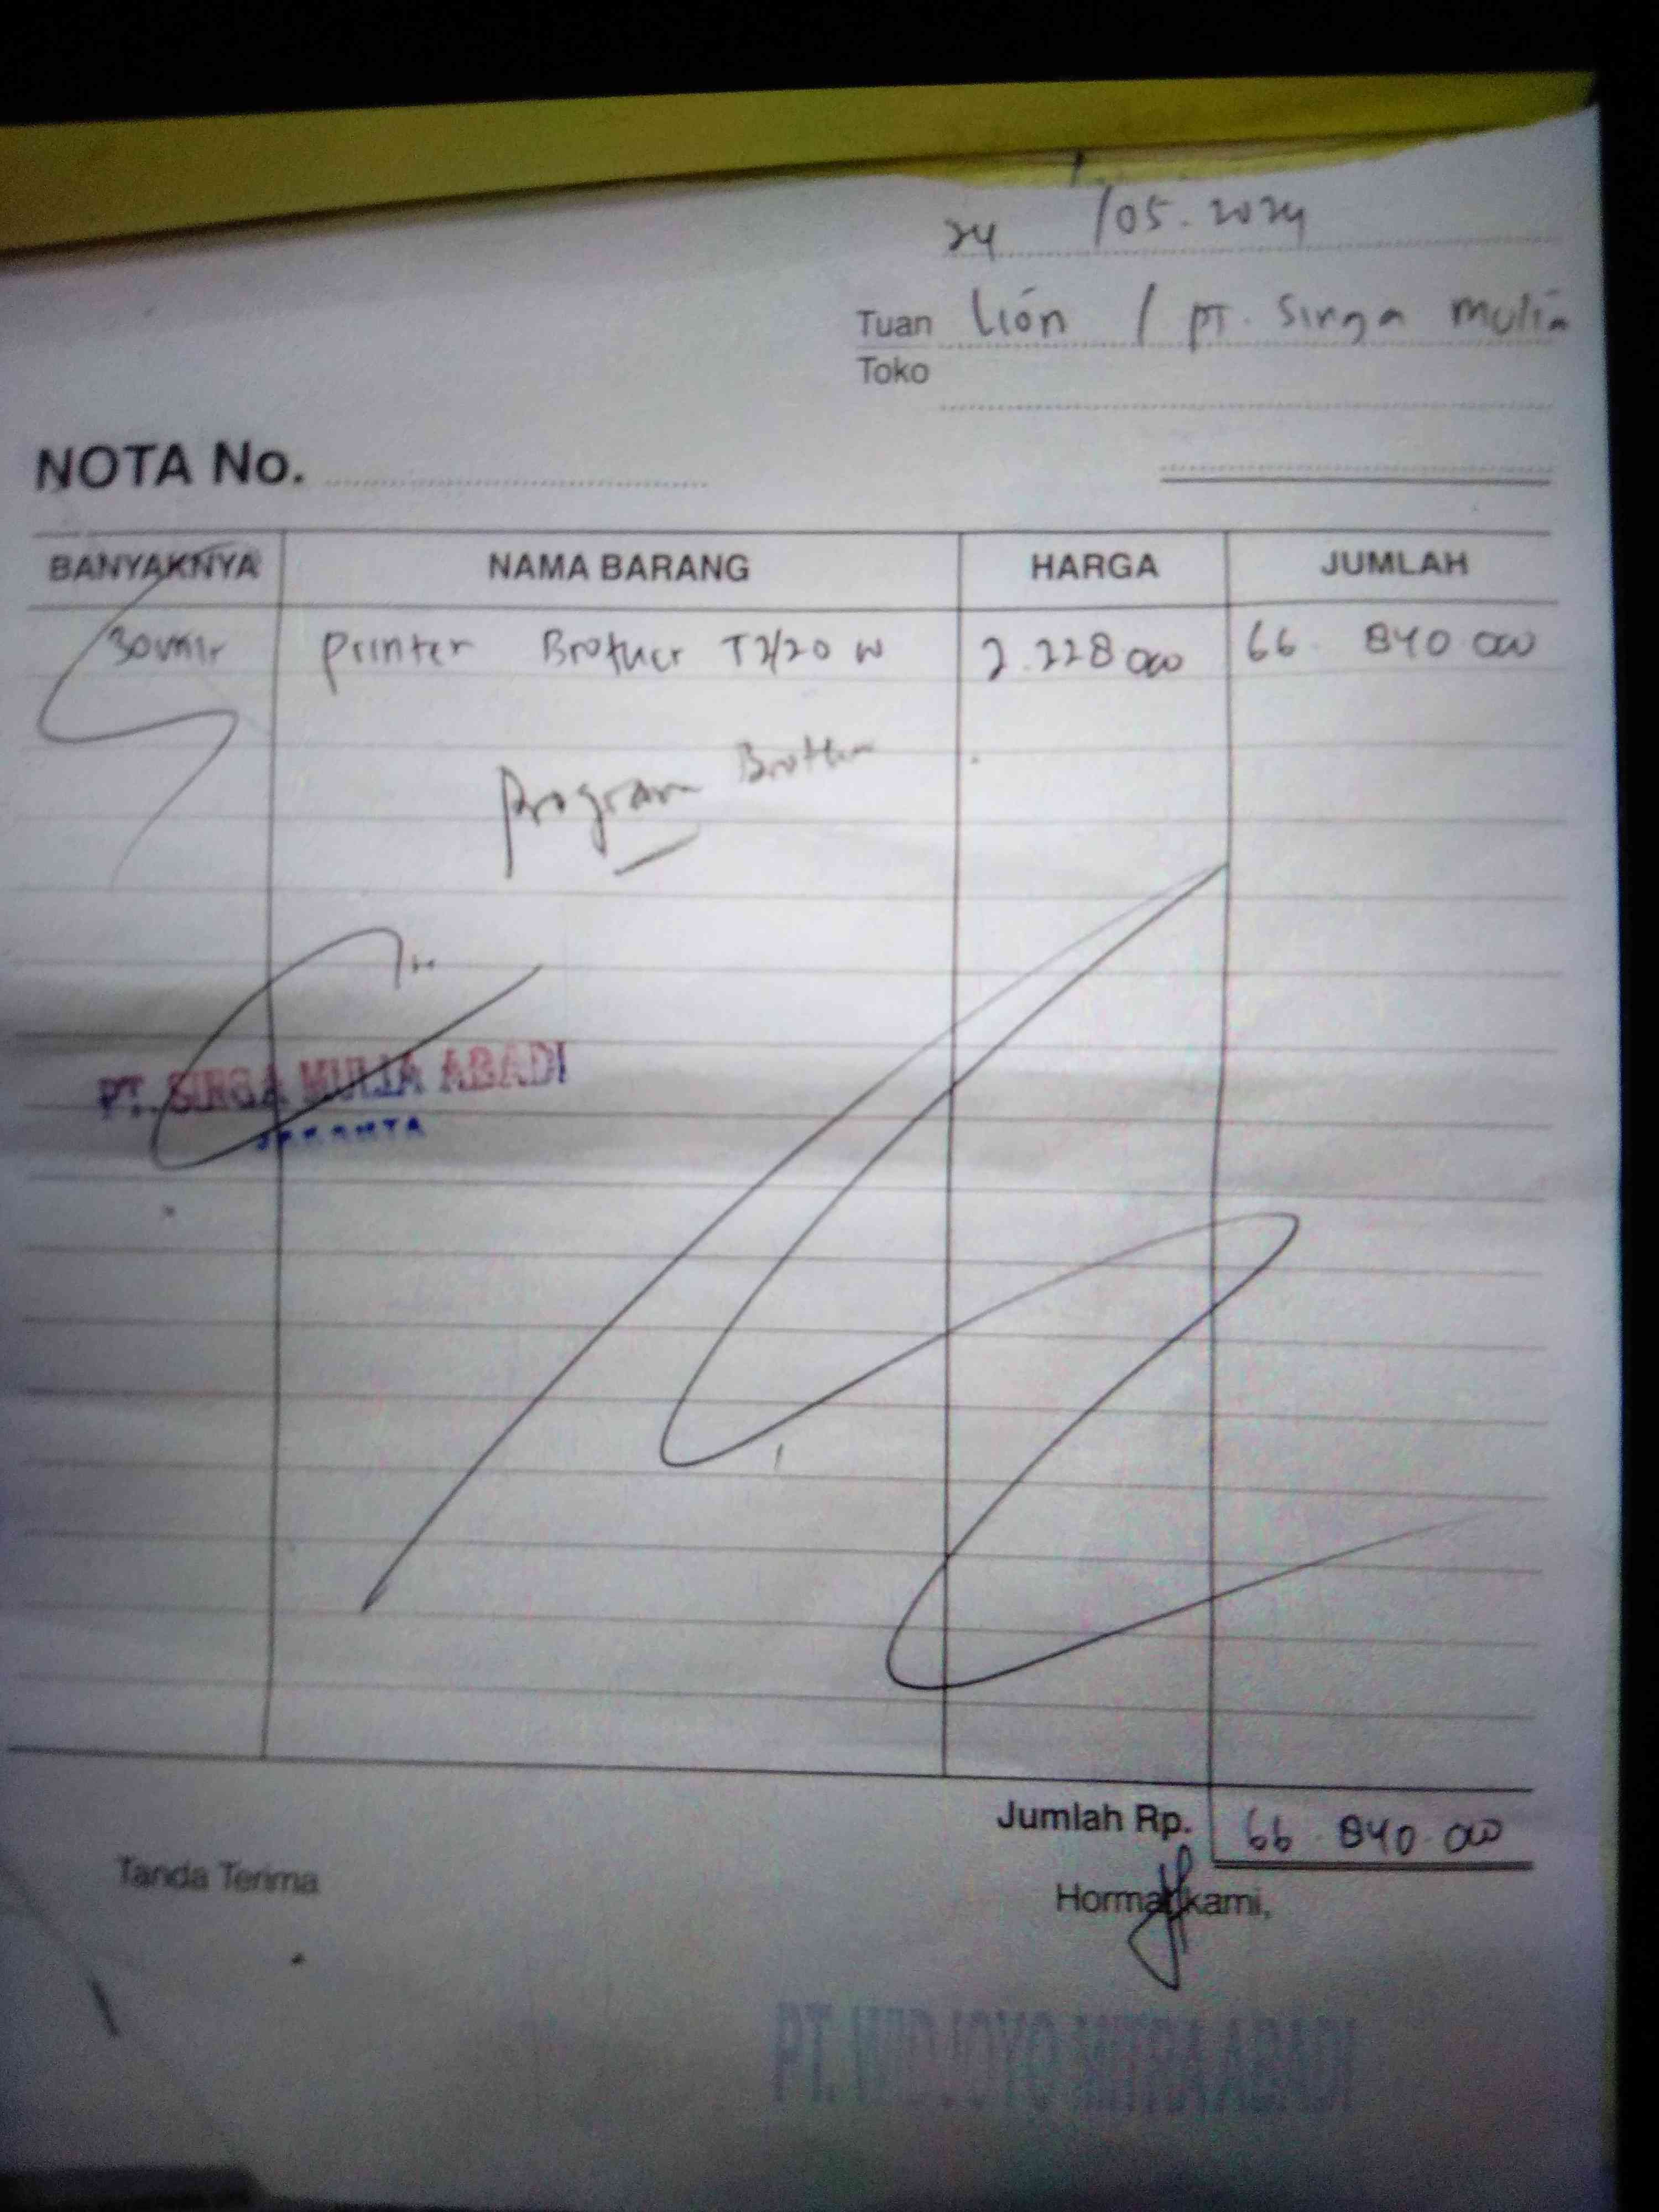 24 /05.2024
Tuan Lion / PT. Sirga Mulia
Toko
NOTA No.
BANYAKNYA NAMA BARANG HARGA JUMLAH
30 unit Printer Brother T2/20 W 2.228 000 66. 840 000
Program Brother
PT. SIRGA MULIA ABADI
JAKARTA
Jumlah Rp. 66. 840.000
Tanda Terima
Hormat kami,
PT. WIDJOYO MITRA ABADI